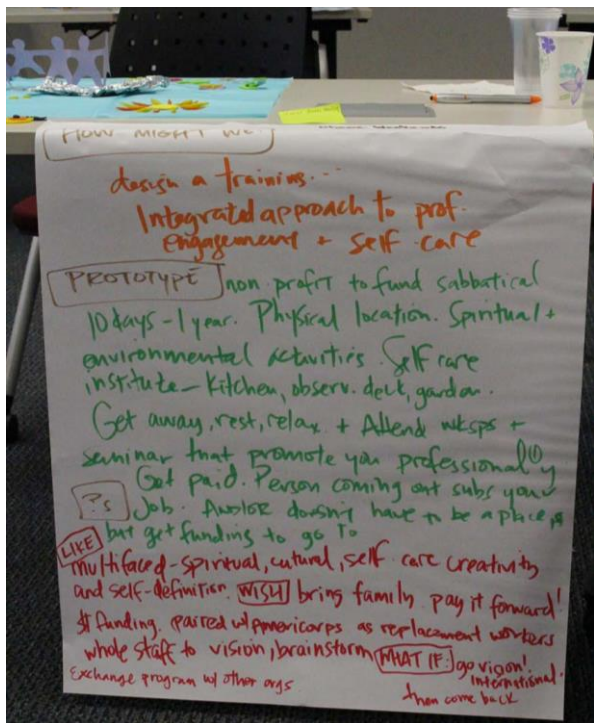 HOW MIGHT WE
design a training...
Integrated approach to prof.
engagement + self care
PROTOTYPE non profit to fund sabbatical
10 days - 1 year. Physical location. Spiritual +
environmental activities. Self care
institute - Kitchen, observ. deck, garden.
Get away, rest, relax + Attend wksps +
seminar that promote you professionally
Get paid. Person coming out subs your
?s Job. And/or doesn't have to be a place,
but get funding to go to
LIKE multifaced-spiritual, cutural, self care creativity
and self-definition. WISH bring family pay it forward!
$ funding. paired w/ Americorps as replacement workers
whole staff to vision, brainstorm WHAT IF: go
International.
Exchange program w/ other orgs
then come back